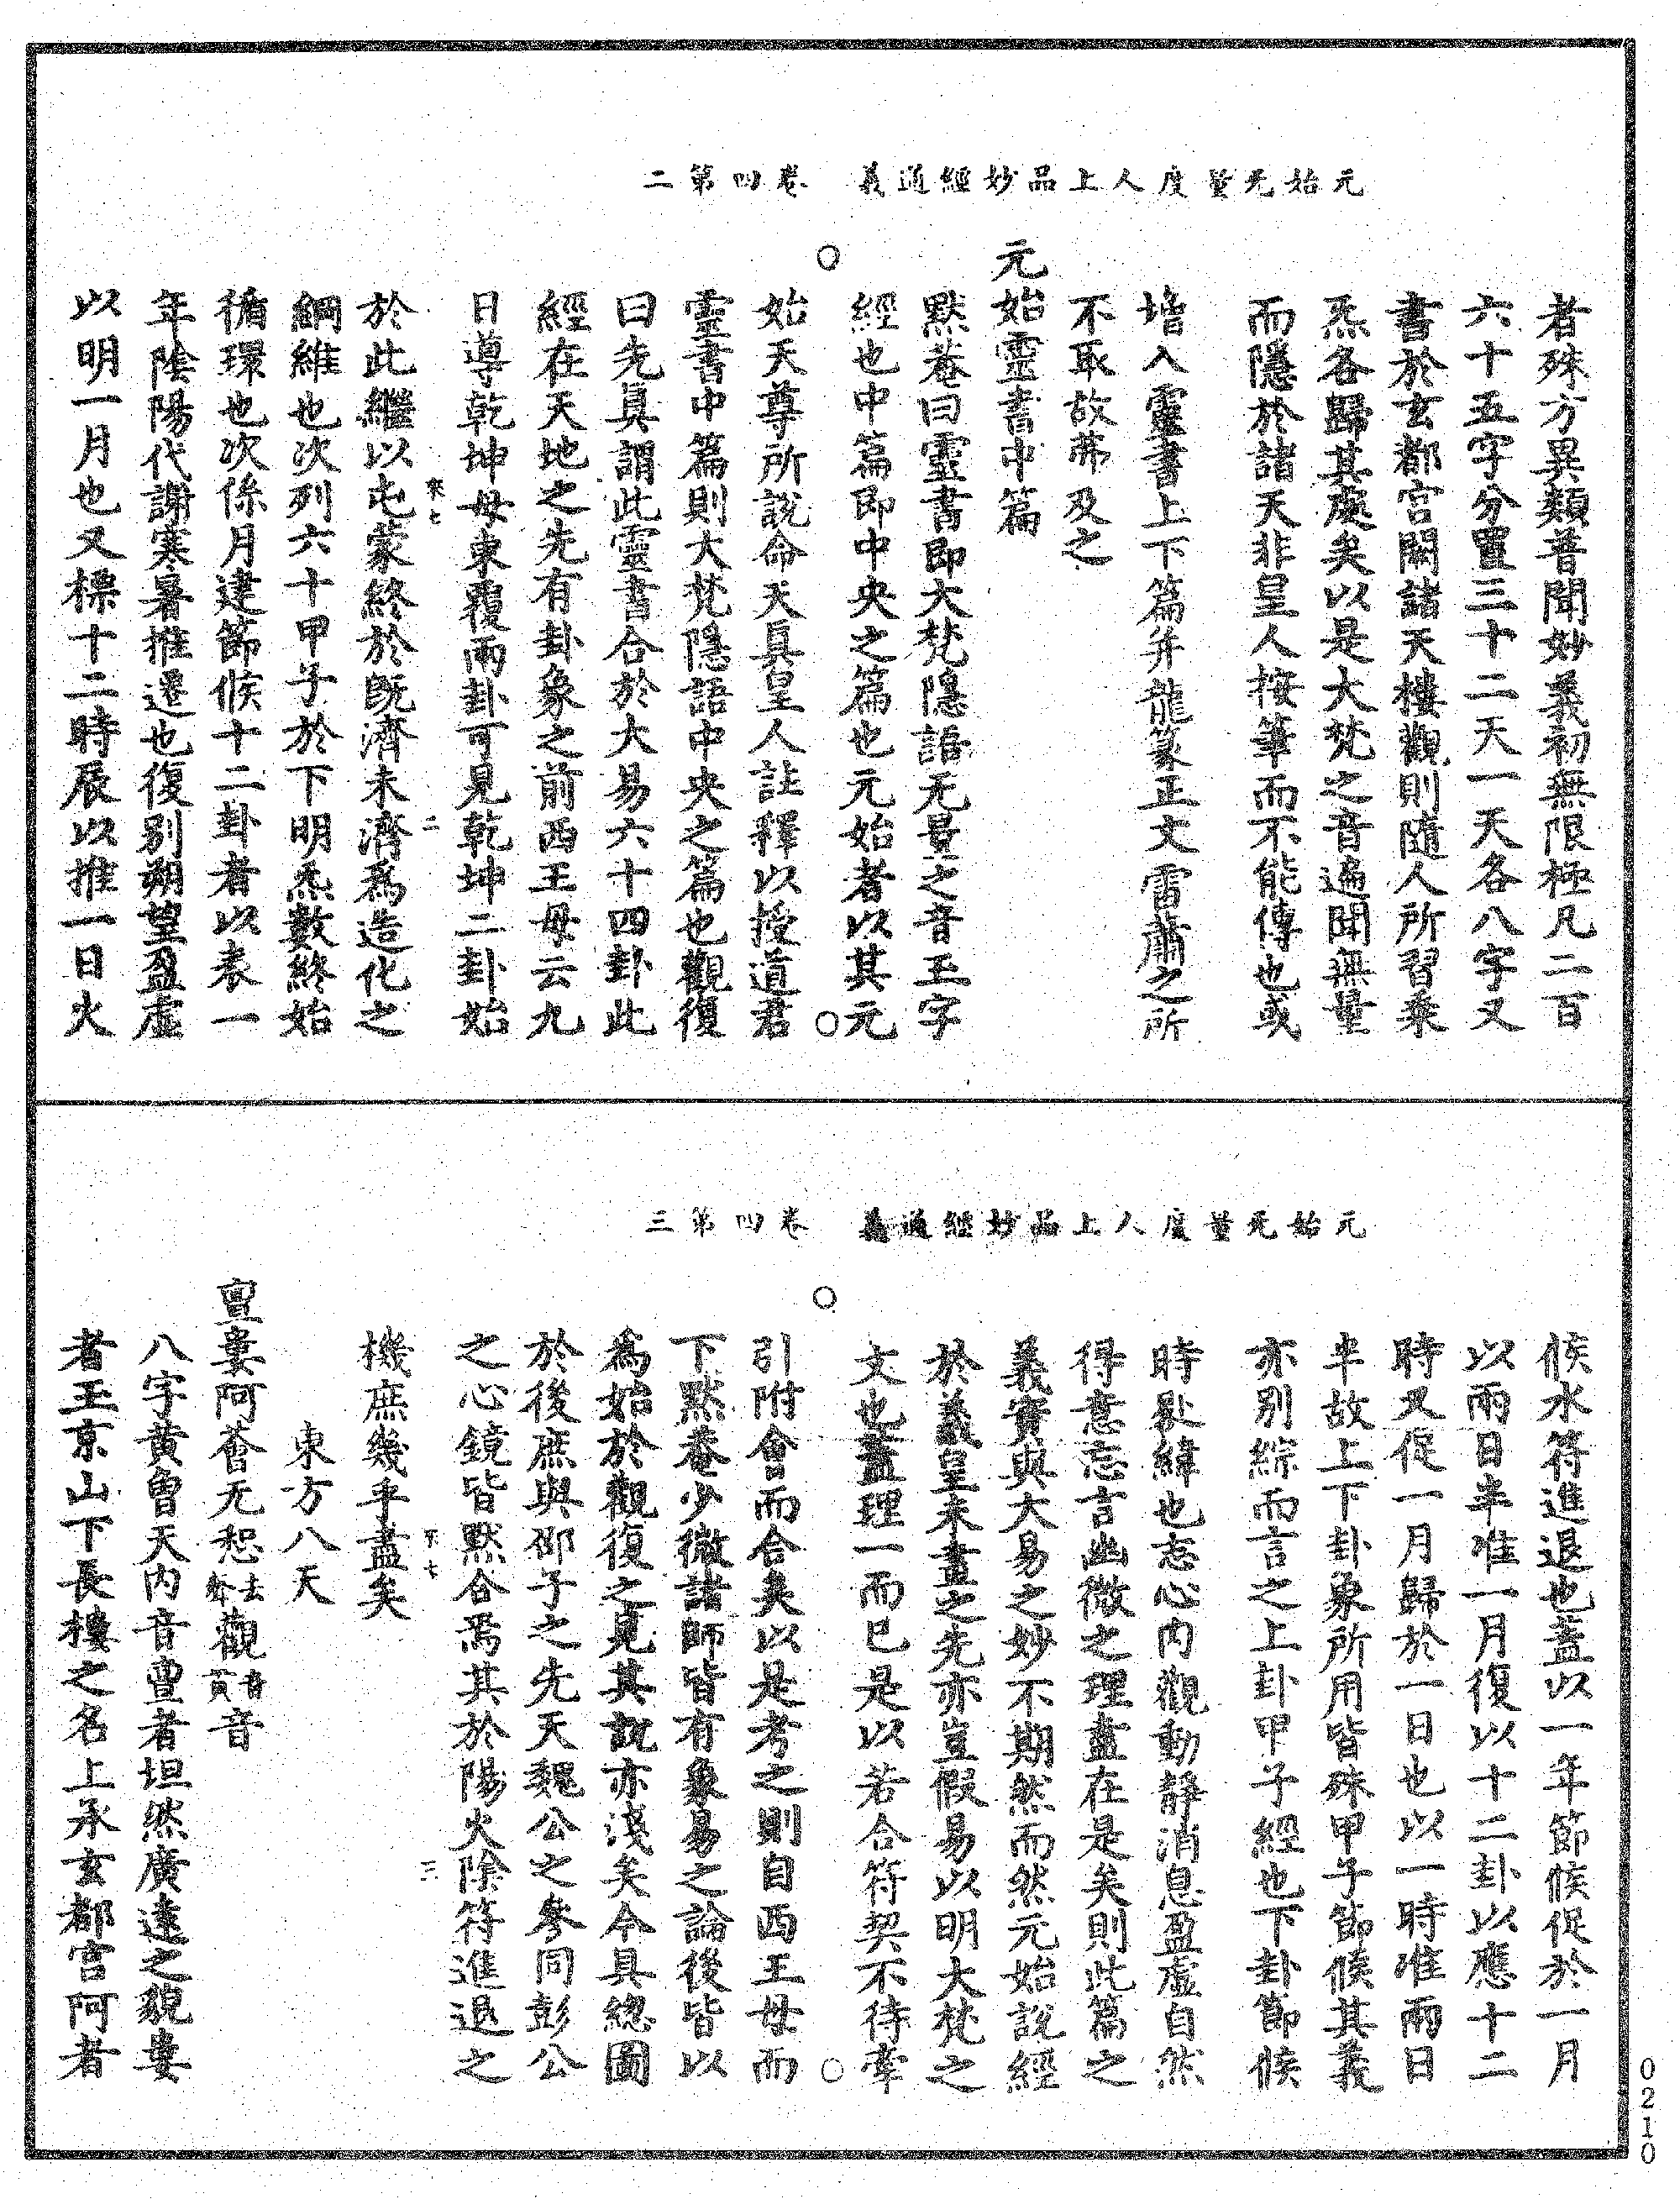 元始无量度人上品妙經通義　卷四第二
者殊方異類普聞妙義初無限極凡二百
六十五字分置三十二天一天各八字又
書於玄都宮闕諸天樓觀則隨人所習乘
炁各歸其處矣以是大梵之音遍聞無量
而隱於諸天非皇人按筆而不能傳也或
增入靈書上下篇并龍篆正文雷蕭之所
不取故弗及之
元始靈書中篇
默菴曰靈書即大梵隱語无量之音玉字
經也中篇即中央之篇也元始者以其元
始天尊所說命天真皇人註釋以授道君
靈書中篇則大梵隱語中央之篇也觀復
曰先真謂此靈書合於大易六十四卦此
經在天地之先有卦象之前西王母云九
日導乾坤母東覆兩卦可見乾坤二卦始
來七　二
於此繼以屯蒙終於既濟未濟爲造化之
綱維也次列六十甲子於下明炁數終始
循環也次係月建節候十二卦者以表一
年陰陽代謝寒暑推遷也復別朔望盈虛
以明一月也又標十二時辰以推一日火
元始无量度人上品妙經通義　卷四第三
候水符進退也蓋以一年節候促於一月
以兩日半准一月復以十二卦以應十二
時又促一月歸於一日也以一時准兩日
半故上下卦象所用皆殊甲子節候其義
亦別綜而言之上卦甲子經也下卦節候
時刻緯也志心內觀動靜消息盈虛自然
得意忘言幽微之理盡在是矣則此篇之
義實與大易之妙不期然而然元始說經
於羲皇未畫之先亦豈假易以明大梵之
文也蓋理一而已是以若合符契不待牽
引附會而合矣以是考之則自西王母而
下默菴少微諸師皆有象易之論後皆以
爲始於觀復之見其說亦淺矣今具總圖
於後庶與邵子之先天魏公之參同彭公
之心鏡皆默合焉其於陽火陰符進退之
來七　三
機庶幾乎盡矣
東方八天
亶婁阿薈无惒去聲觀音黃音
八字黃曾天內音亶者坦然廣遠之貌婁
者玉京山下長樓之名上承玄都宮阿者
0210